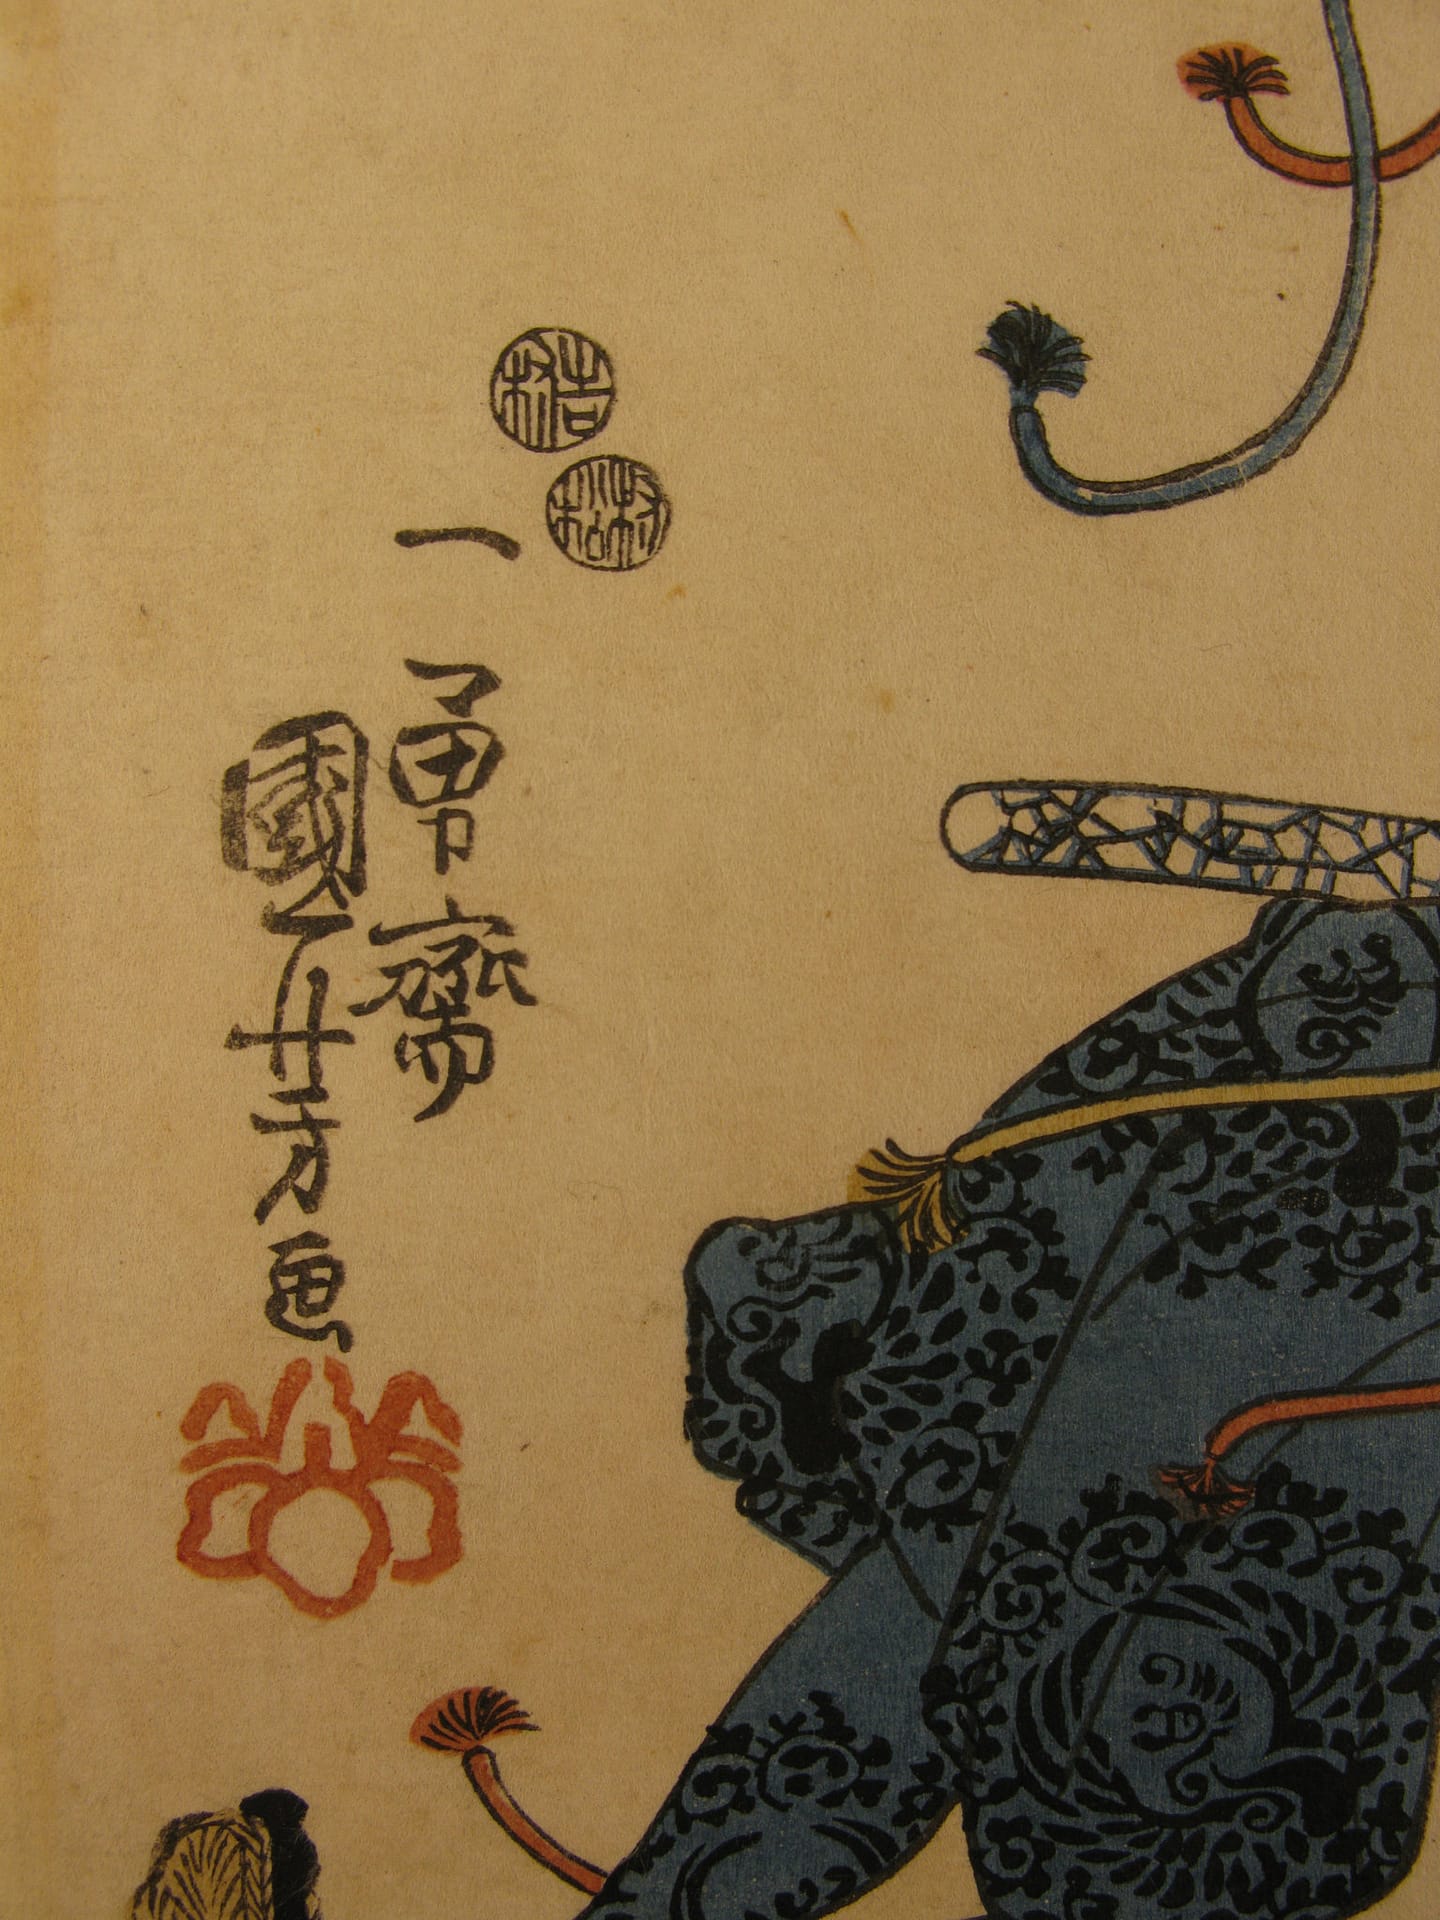 吉村
村松
一勇齋
國芳画